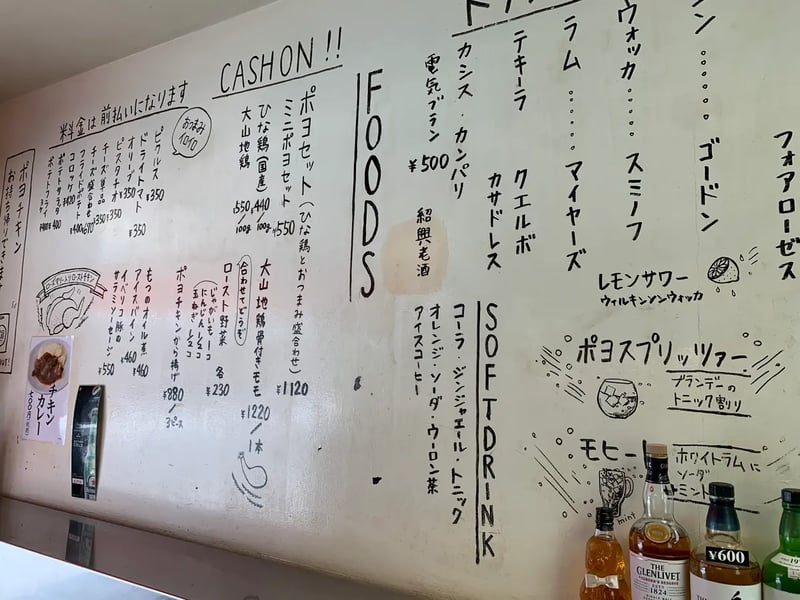 CASHON !!
料金は前払いになります
おつまみ
イロイロ
ポヨチキン
お持ち帰りできます
FOODS
ポヨセット(ひな鶏とおつまみ盛合わせ) ¥1120
ミニポヨセット ¥550
ひな鶏(国産) 440/100g
大山地鶏 550/100g
ピクルス ¥350
ドライトマト ¥350
オリーブ ¥350
ピスタチオ ¥350
チーズ単品 ¥350
チーズ盛合わせ ¥670
コロッケ ¥420
ポテトサラダ ¥400
ポテトフライ ¥400
大山地鶏骨付きモモ ¥1220/1本
合わせてどうぞ
ロースト野菜 各¥230
じゃがいも
にんじん
玉ねぎ
ポヨチキンから揚げ ¥880/3ピース
もつのオイル煮 ¥460
アイスバイン ¥460
イベリコ豚の
サラミソーセージ ¥550
チキン
カレー
ジン …… ゴードン
ウォッカ …… スミノフ
ラム …… マイヤーズ
テキーラ クエルボ
カサドレス
カシス・カンパリ
電気ブラン ¥500
紹興老酒
フォアローゼス
SOFTDRINK
コーラ・ジンジャエール・トニック
オレンジ・ソーダ・ウーロン茶
アイスコーヒー
レモンサワー
ウィルキンソンウォッカ
ポヨスプリッツァー
ブランデーの
トニック割り
モヒート
ホワイトラムに
ソーダ
ミント
mint
THE
GLENLIVET
1824
¥600